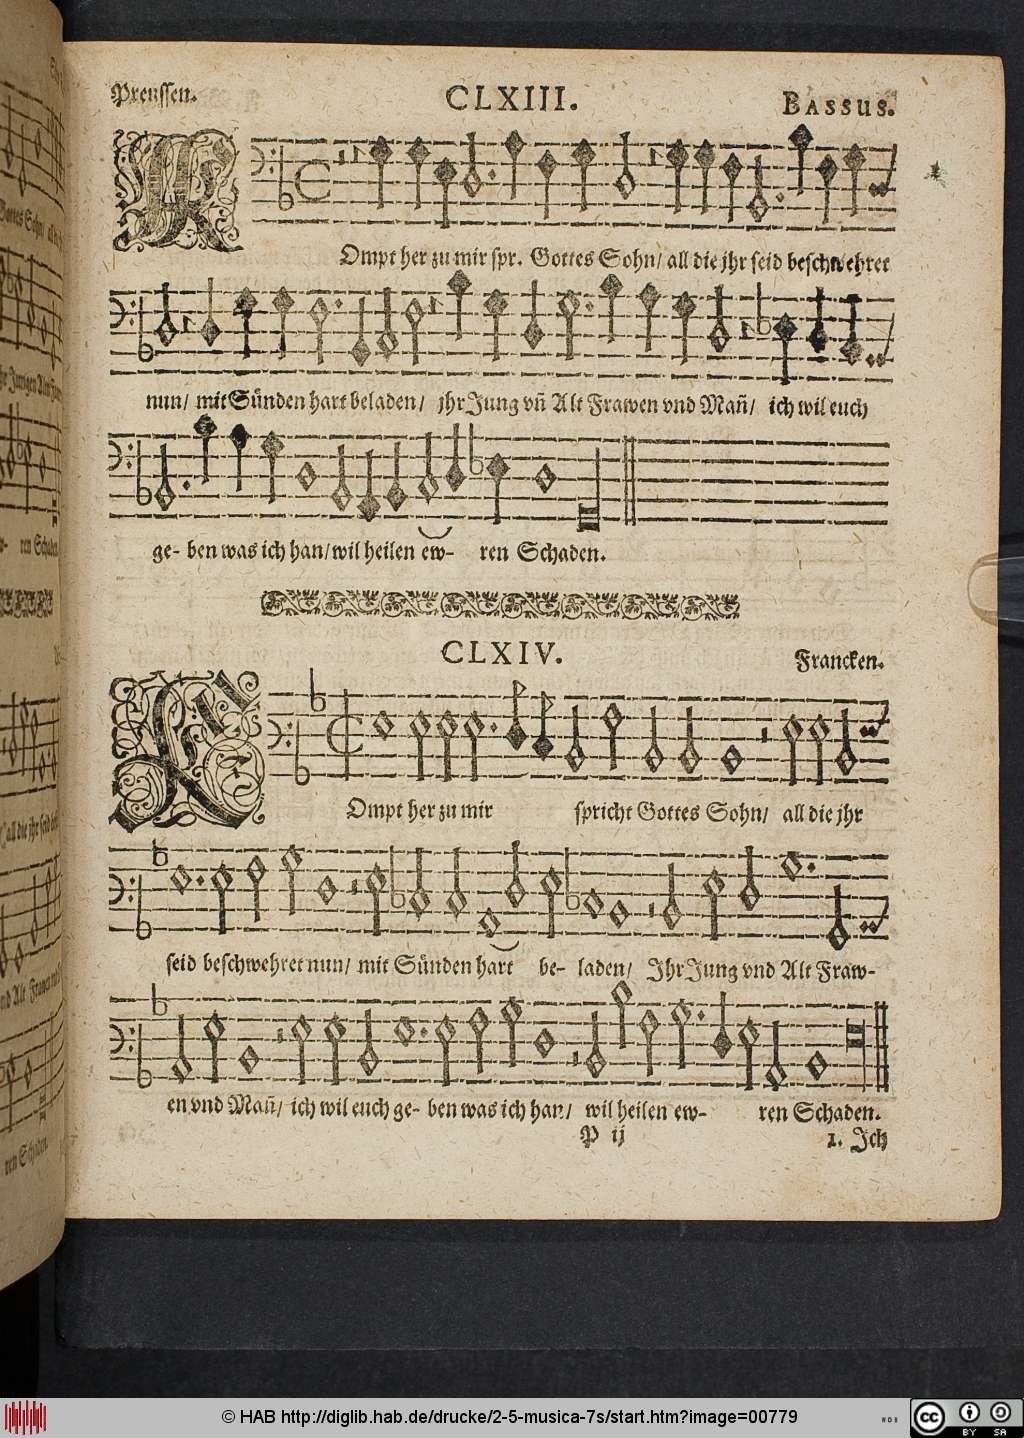 Preussen.
CLXIII.
BASSUS.
K
Ompt her zu mir spr. Gottes Sohn/ all die jhr seid beschwehret
nun/ mit Sünden hart beladen/ jhr Jung vñ Alt Frawen vnd Mañ/ ich wil euch
ge- ben was ich han/ wil heilen ew- ren Schaden.
CLXIV.
Francken.
K
Ompt her zu mir spricht Gottes Sohn/ all die jhr
seid beschwehret nun/ mit Sünden hart be- laden/ Jhr Jung vnd Alt Fraw-
en vnd Mañ/ ich wil euch ge- ben was ich han/ wil heilen ew- ren Schaden.
P ij
1. Jch
© HAB http://diglib.hab.de/drucke/2-5-musica-7s/start.htm?image=00779
cc BY SA